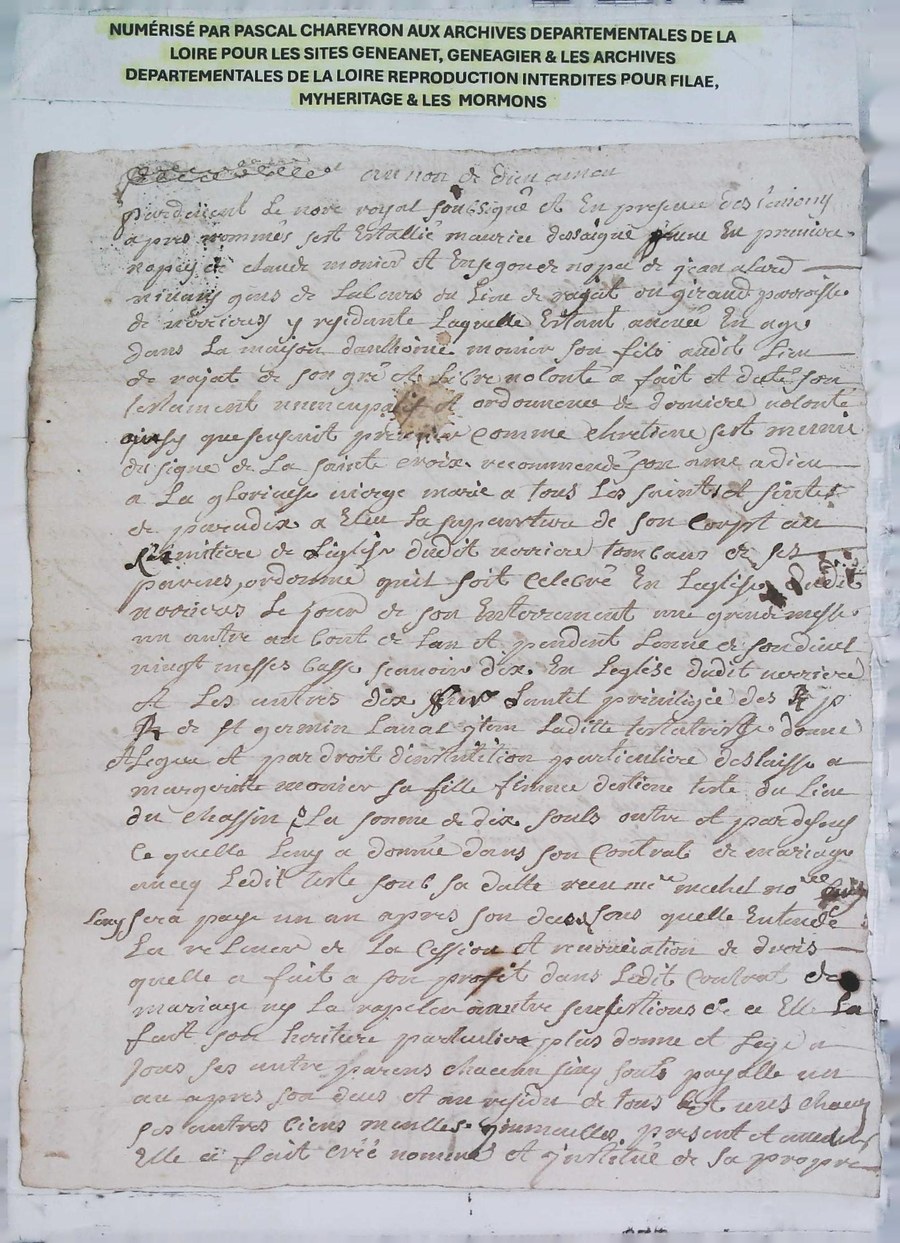 NUMÉRISÉ PAR PASCAL CHAREYRON AUX ARCHIVES DEPARTEMENTALES DE LA
LOIRE POUR LES SITES GENEANET, GENEAGIER & LES ARCHIVES
DEPARTEMENTALES DE LA LOIRE REPRODUCTION INTERDITES POUR FILAE,
MYHERITAGE & LES MORMONS
au non de dieu amen
pardevent Le nore royal soubsigné et En presence des temoins
apres nommes sest Establie maurice dessaigne En premiere
nopces de claude monier et En segonde nopce de jean alard
vivans gens de Labours du Lieu de rajat ou giraud parroisse
de verrieres y residante Laquelle Estant En age
dans La maison danthoine monier son fils audit Lieu
de rajat de son gré et Libre volonté a fait et dicté son
testament nuncupatif et ordonnence de derniere volonté
quesensuit premier comme chretiene sest munie
du signe de La sainte croix recommendé son ame a dieu
a La glorieuse vierge marie a tous Les saints et sintes
de paradix a Eleu La supeurture de son Corpt au
simitiere de Léglise dudit verriere tombaus de ses
parens, ordonne quil soit Celebré En Leglise dudit
verrieres Le jour de son Enterrement une grande messe
un autre au bout de Lan et pendent Lanné de son deuil
vingt messes basse scavoir dix En Leglise dudit verriere
et Les autres dix sur Lautel privilegiée des
de st germin Laval ytem Laditte testatrisse donne
et Legue et par droit dinstitution particuliere deslaisse a
margerite monier sa fille femme destiene teste du Lieu
du chassin La somme de dix souls outre et pardesus
Ce quelle Luy a donné dans son Contrat de mariage
avecq Ledit teste soub sa datte receu me michel nore
Luy sera paye un an apres son deus sous quelle Entende
La relever de La Cession et renonciation de drois
quelle a fait a son profit dans Ledit Contrat de
mariage ny La rapeler a autre de ce Elle La
fait son heritiere particuliere plus donne et Lege a
tous ses autre parens chacun sinq souls payable un
an apres son deus et au residu de tous et uns chacuns
ses autres biens meubles ymmeubles present et
Elle a fait créé nommé et ynstitué de sa propre